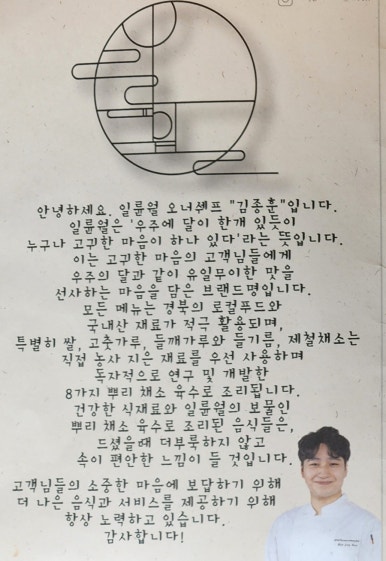 안녕하세요. 일륜월 오너쉐프 "김종훈"입니다.
일륜월은 '우주에 달이 한개 있듯이
누구나 고귀한 마음이 하나 있다'라는 뜻입니다.
이는 고귀한 마음의 고객님들에게
우주의 달과 같이 유일무이한 맛을
선사하는 마음을 담은 브랜드명입니다.
모든 메뉴는 경북의 로컬푸드와
국내산 재료가 적극 활용되며,
특별히 쌀, 고춧가루, 들깨가루와 들기름, 제철채소는
직접 농사 지은 재료를 우선 사용하며
독자적으로 연구 및 개발한
8가지 뿌리 채소 육수로 조리됩니다.
건강한 식재료와 일륜월의 보물인
뿌리 채소 육수로 조리된 음식들은,
드셨을때 더부룩하지 않고
속이 편안한 느낌이 들 것입니다.
고객님들의 소중한 마음에 보답하기 위해
더 나은 음식과 서비스를 제공하기 위해
항상 노력하고 있습니다.
감사합니다!